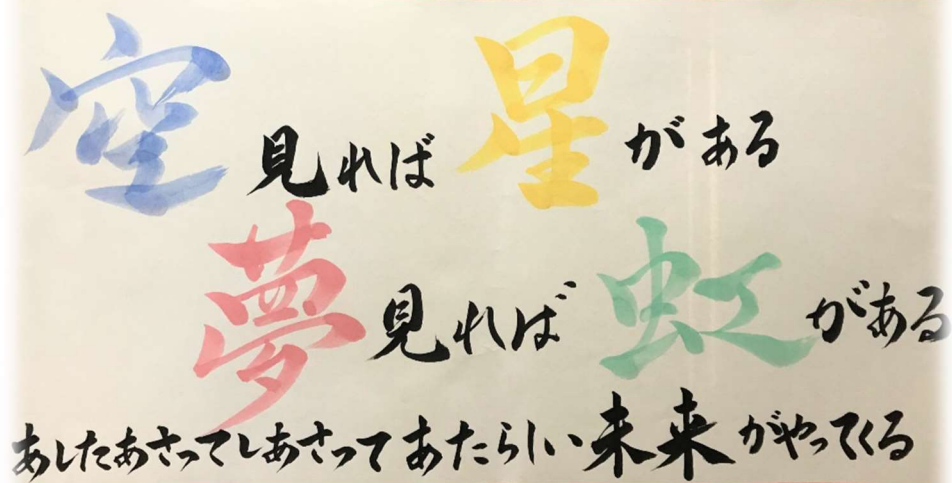 空見れば星がある
夢見れば虹がある
あしたあさってしあさってあたらしい未来がやってくる